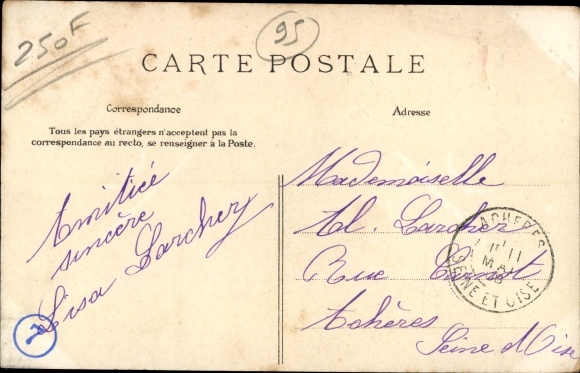 250F
95
CARTE POSTALE
Correspondance
Adresse
Tous les pays étrangers n'acceptent pas la
correspondance au recto, se renseigner à la Poste.
Amitiée
sincère
Lisa Larcher
Mademoiselle
Al. Larcher
Rue Carnot
Achères
Seine et Oise
ACHERES
11
MAI
SEINE ET OISE